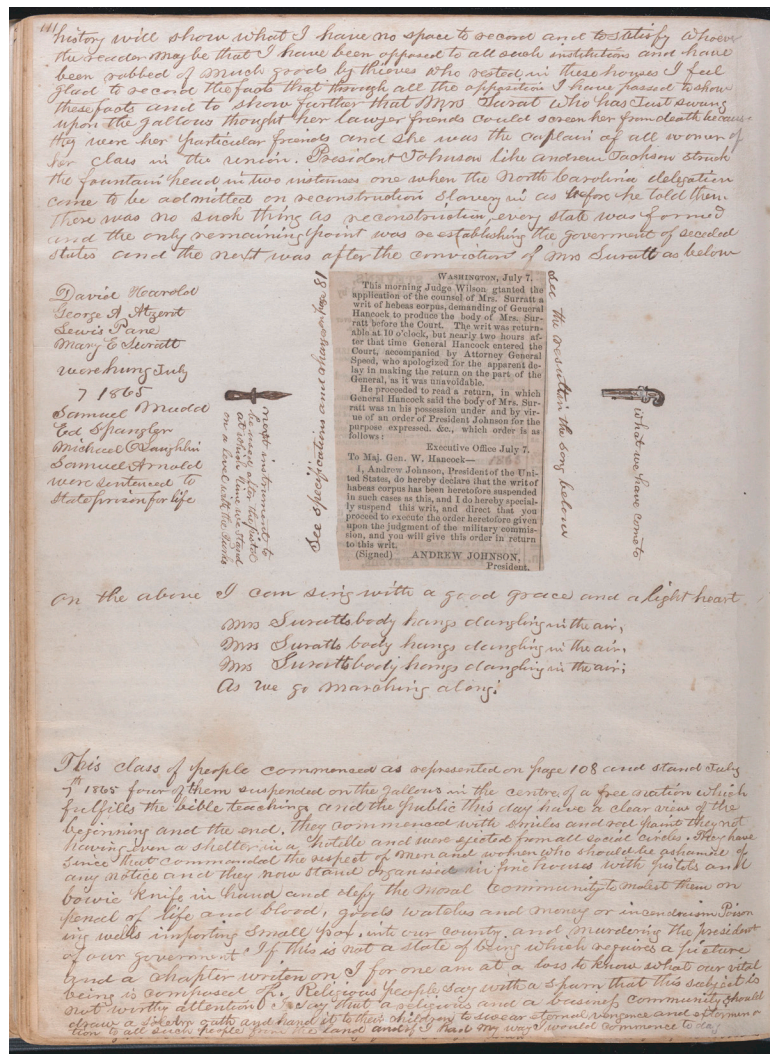 111
history will show what I have no space to record and to satisfy whoever
the reader may be that I have been opposed to all such institutions and have
been robbed of much goods by thieves who rested in these houses I feel
glad to record the facts that through all the opposition I have passed to show
these facts and to show further that Mrs Surat who has Just swung
upon the gallows thought her lawyer friends could screen her from death because
they were her particular friends and she was the captain of all women of
her class in the union. President Johnson like andrew Jackson struck
the fountain head in two instances one when the North Carolina delegation
come to be admitted on reconstruction Slavery in as before he told them
There was no such thing as reconstruction, every state was formed
and the only remaining point was reestablishing the goverment of seceded
states and the next was after the conviction of Mrs Suratt as below
David Harold
George A Atzert
Lewis Pane
Mary E Suratt
were hung July
7 1865
Samuel Mudd
Ed Spangler
Michael OLaughlin
Samuel Arnold
were sentenced to
state prison for life
next instruments to
be used after the pistol
at which time we stand
on a level with the Turks
See specifications and charges on page 81
WASHINGTON, July 7.
This morning Judge Wilson granted the
application of the counsel of Mrs. Surratt a
writ of hebeas corpus, demanding of General
Hancock to produce the body of Mrs. Sur-
ratt before the Court. The writ was return-
able at 10 o'clock, but nearly two hours af-
ter that time General Hancock entered the
Court, accompanied by Attorney General
Speed, who apologized for the apparent de-
lay in making the return on the part of the
General, as it was unavoidable.
He proceeded to read a return, in which
General Hancock said the body of Mrs. Sur-
ratt was in his possession under and by vir-
ue of an order of President Johnson for the
purpose expressed, &c., which order is as
follows:
Executive Office July 7.
1865
To Maj. Gen. W. Hancock—
I, Andrew Johnson, President of the Uni-
ted States, do hereby declare that the writ of
habeas corpus has been heretofore suspended
in such cases as this, and I do hereby special-
ly suspend this writ, and direct that you
proceed to execute the order heretofore given
upon the judgment of the military commis-
sion, and you will give this order in return
to this writ.
(Signed) ANDREW JOHNSON,
President.
see the result in the song below
what we have come to
on the above I can sing with a good grace and a light heart
Mrs Suratts body hangs dangling in the air,
Mrs Suratts body hangs dangling in the air,
Mrs Suratts body hangs dangling in the air;
As we go marching along;
This class of people commenced as represented on page 108 and stand July
7th 1865 four of them suspended on the gallows in the centre of a free nation which
fulfills the bible teaching and the public this day have a clear view of the
beginning and the end, they commenced with smiles and red paint they not
having even a shelter in a hotelle and were ejected from all social circles. They have
since that commanded the respect of men and women who should be ashamed of
any notice and they now stand organised in fine houses with pistols and
bowie knife in hand and defy the moral community to molest them on
peral of life and blood, goods watches and money or incendiarism Poison
ing wells importing Small pox into our county and murdering the president
of our goverment. If this is not a state of being which requires a picture
and a chapter writen on I for one am at a loss to know what our vital
being is composed of. Religious people say with a spurn that this subject is
not worthy attention I say that a religious and a business community should
draw a solemn oath and hand it to their children to swear eternal vengence and extermina
tion to all such people from the land and if I had my way I would commence to day